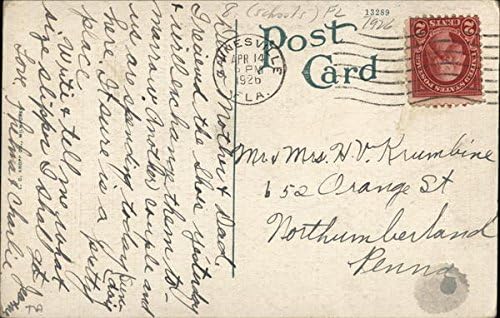 (school) FL
13289
1926
Post
Card
APR 14
1926
FLA.
UNITED STATES POSTAGE
2 CENTS 2
Mr & Mrs. H. V. Krumbine
652 Orange St
Northumberland
Penna
Dear Mother & Dad.
I received the shoes yesterday
& will exchange them to-
morrow. Another couple and
us are spending today (Sun)
here. It sure is a pretty
place.
Write & tell me what
size slipper I shall get
Love, Thelma & Charlie